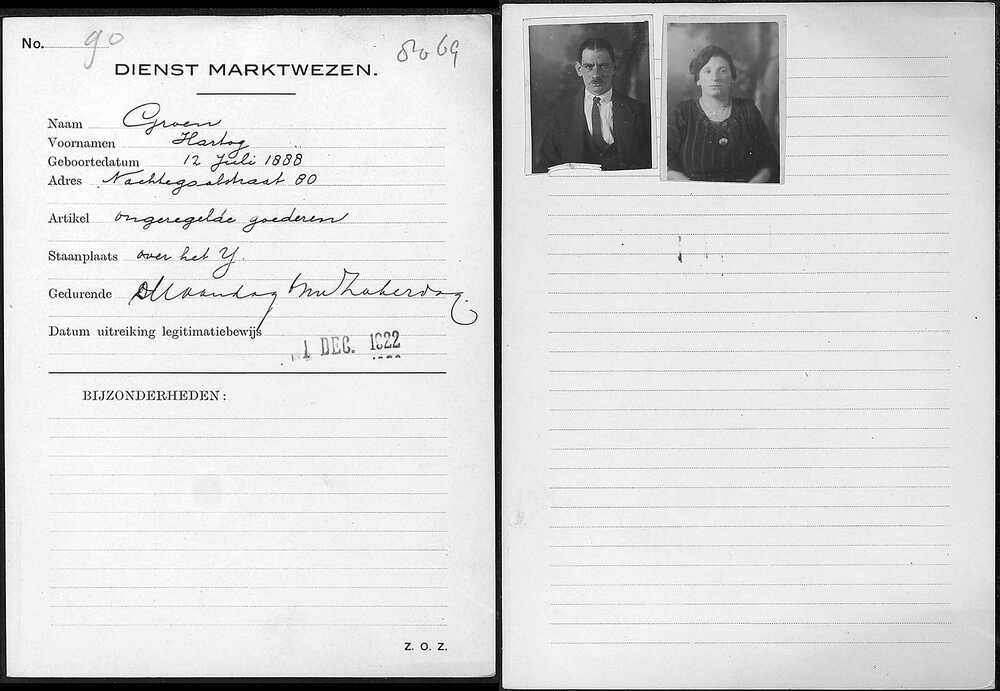 No. 90
8069
DIENST MARKTWEZEN.
Naam Groen
Voornamen Hartog
Geboortedatum 12 Juli 1888
Adres Nachtegaalstraat 80
Artikel ongeregelde goederen
Staanplaats over het Y.
Gedurende Maandag t/m Zaterdag.
Datum uitreiking legitimatiebewijs
1 DEC. 1922
BIJZONDERHEDEN:
Z. O. Z.